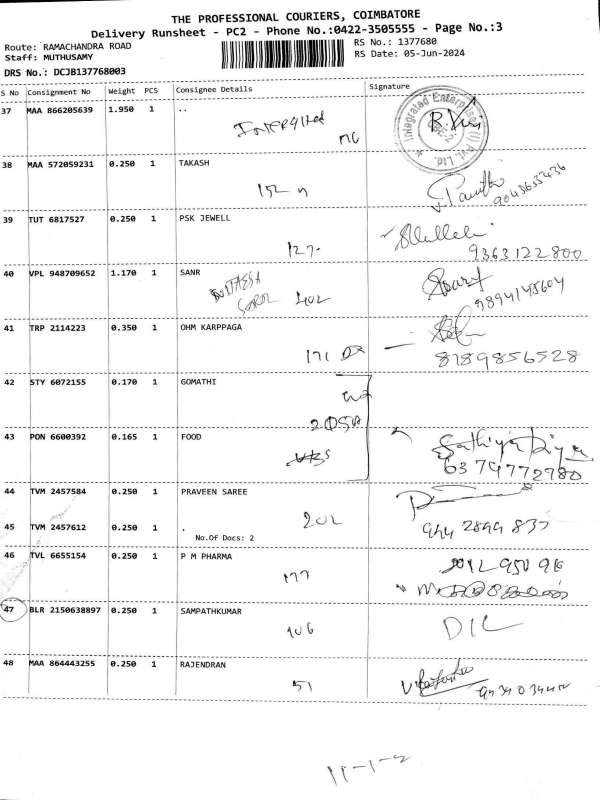 THE PROFESSIONAL COURIERS, COIMBATORE
Delivery Runsheet - PC2 - Phone No.:0422-3505555 - Page No.:3
Route: RAMACHANDRA ROAD
RS No.: 1377680
Staff: MUTHUSAMY
RS Date: 05-Jun-2024
DRS No.: DCJB137768003
S No Consignment No Weight PCS Consignee Details Signature
37 MAA 866205639 1.950 1 ..
Integrated Enterprises (I) Pvt. Ltd.
38 MAA 572059231 0.250 1 TAKASH
9043633436
39 TUT 6817527 0.250 1 PSK JEWELL
127
9363122800
40 VPL 948709652 1.170 1 SANR
402
9894148604
41 TRP 2114223 0.350 1 OHM KARPPAGA
171
8189856528
42 STY 6072155 0.170 1 GOMATHI
43 PON 6600392 0.165 1 FOOD
Sathiya Priya
6374772980
44 TVM 2457584 0.250 1 PRAVEEN SAREE
202
45 TVM 2457612 0.250 1 .
No.Of Docs: 2
46 TVL 6655154 0.250 1 P M PHARMA
177
47 BLR 2150638897 0.250 1 SAMPATHKUMAR
106
DIL
48 MAA 864443255 0.250 1 RAJENDRAN
51
11-1-2